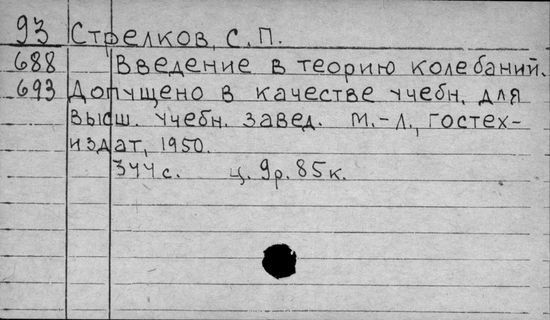 93 Стрелков, С.П.
688 Введение в теорию колебаний.
693 Допущено в качестве учебн. для
высш. учебн. завед. М.-Л., Гостех-
издат, 1950.
344с. ц. 9р. 85к.